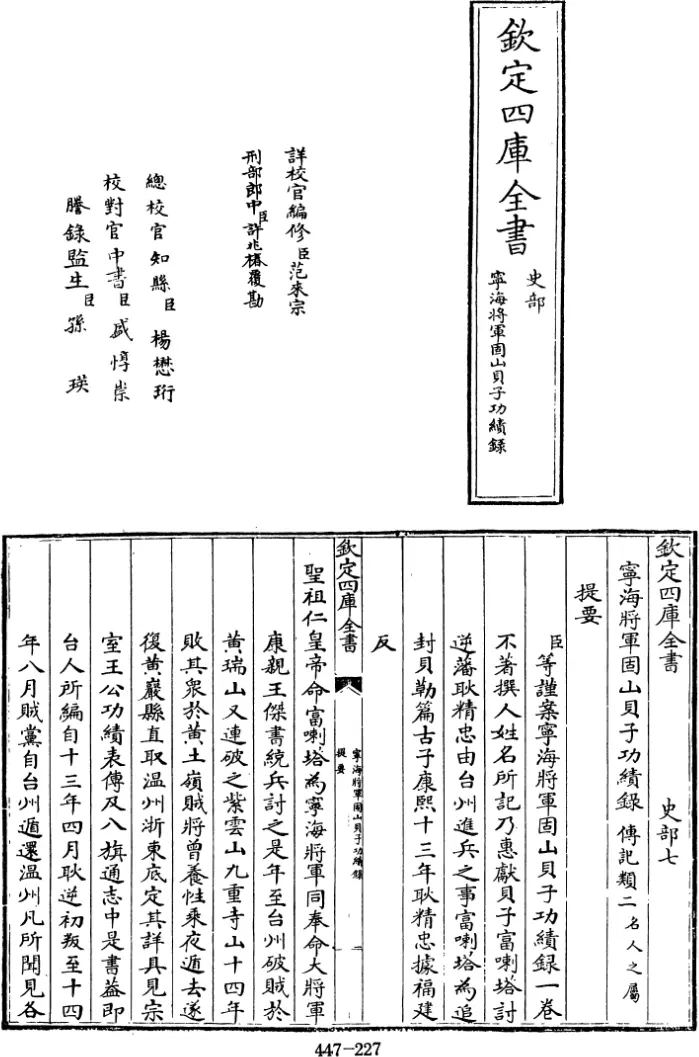 欽定四庫全書
史部
寧海將軍固山貝子功績錄
詳校官編修臣范來宗
刑部郎中臣許兆椿覆勘
總校官知縣臣楊懋珩
校對官中書臣盛惇崇
謄錄監生臣孫瑛
欽定四庫全書 史部七
寧海將軍固山貝子功績錄 傳記類二名人之屬
提要
臣等謹案寧海將軍固山貝子功績錄一卷
不著撰人姓名所記乃惠獻貝子富喇塔討
逆藩耿精忠由台州進兵之事富喇塔為追
封貝勒篇古子康熙十三年耿精忠據福建
反
欽定四庫全書
寧海將軍固山貝子功績錄
提要
一
聖祖仁皇帝命富喇塔為寧海將軍同奉命大將軍
康親王傑書統兵討之是年至台州破賊於
黃瑞山又連破之紫雲山九重寺山十四年
敗其衆於黃土嶺賊將曾養性乘夜遁去遂
復黃巖縣直取溫州浙東底定其詳具見宗
室王公功績表傳及八旗通志中是書蓋即
台人所編自十三年四月耿逆初叛至十四
年八月賊黨自台州遁還溫州凡所聞見各
447-227